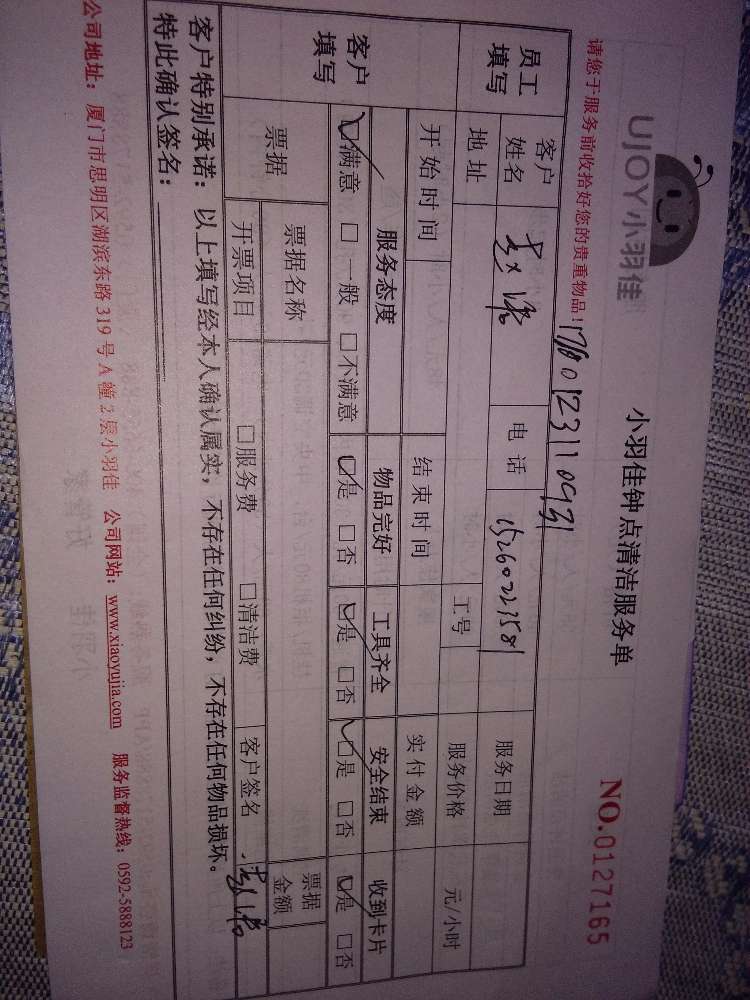 UJOY小羽佳
小羽佳钟点清洁服务单
NO.0127165
请您于服务前收拾好您的贵重物品！
员工填写
客户姓名
电话 15260221581
服务日期
地址
工号
服务价格
元/小时
开始时间
结束时间
实付金额
客户填写
服务态度 物品完好 工具齐全 安全结束 收到卡片
☑满意 □一般 □不满意 ☑是 □否 ☑是 □否 ☑是 □否 ☑是 □否
票据
票据名称
票据金额
开票项目 □服务费 □清洁费 客户签名
客户特别承诺：以上填写经本人确认属实，不存在任何纠纷，不存在任何物品损坏。
特此确认签名：
公司地址：厦门市思明区湖滨东路 319 号 A 幢 2 层小羽佳 公司网站：www.xiaoyujia.com 服务监督热线：0592-5888123